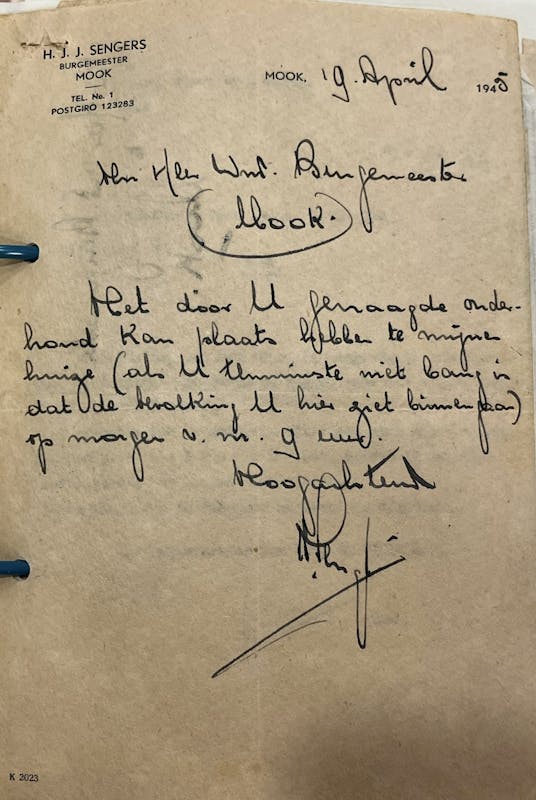 H. J. J. SENGERS
BURGEMEESTER
MOOK
TEL. No. 1
POSTGIRO 123283
MOOK, 19 April 1945
Den Heer Wnd. Burgemeester
(Mook.)
Het door U gevraagde onder-
houd kan plaats hebben te mijnen
huize (als U tenminste niet bang is
dat de bevolking U hier ziet binnengaan)
op morgen v. m. 9 uur.
Hoogachtend
K 2023